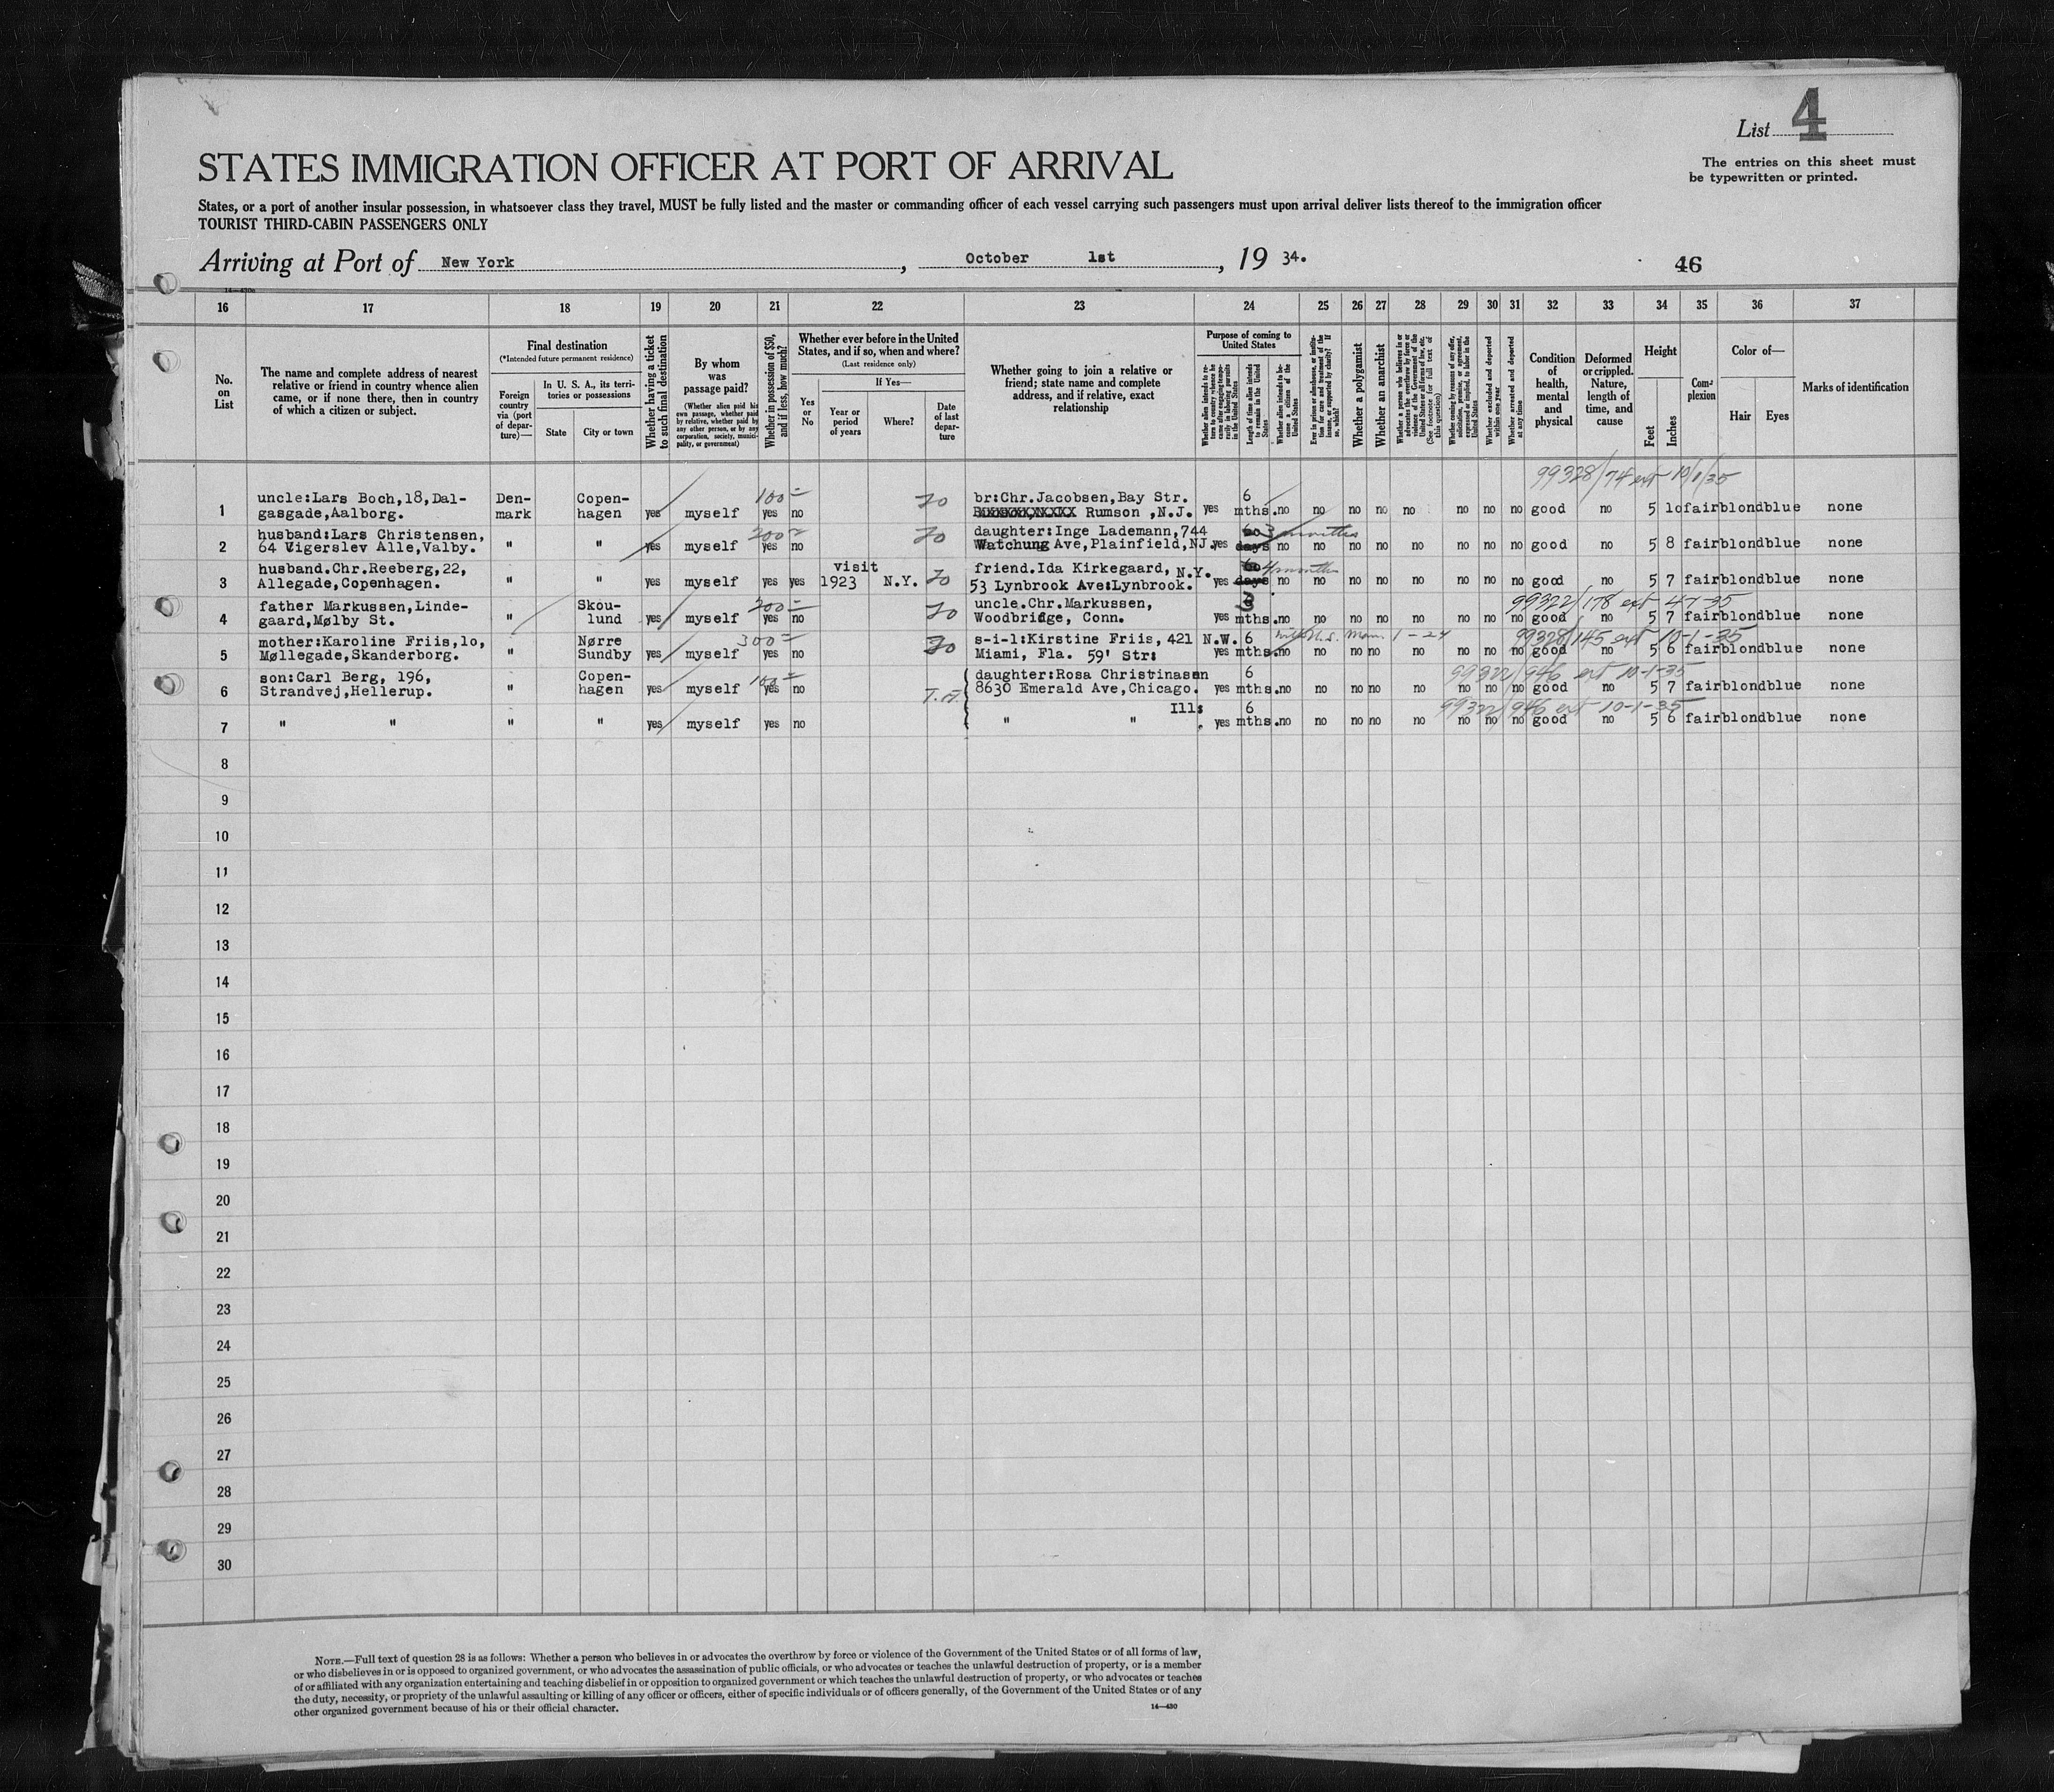 List 4
The entries on this sheet must
be typewritten or printed.
STATES IMMIGRATION OFFICER AT PORT OF ARRIVAL
States, or a port of another insular possession, in whatsoever class they travel, MUST be fully listed and the master or commanding officer of each vessel carrying such passengers must upon arrival deliver lists thereof to the immigration officer
TOURIST THIRD-CABIN PASSENGERS ONLY
Arriving at Port of New York, October 1st, 19 34.
46
16 17 18 19 20 21 22 23 24 25 26 27 28 29 30 31 32 33 34 35 36 37
No. on List
The name and complete address of nearest
relative or friend in country whence alien
came, or if none there, then in country
of which a citizen or subject.
Final destination
(*Intended future permanent residence)
Foreign country via (port of departure)—
In U. S. A., its territories or possessions
State
City or town
Whether having a ticket to such final destination
By whom was passage paid?
(Whether alien paid his own passage, whether paid by relative, whether paid by any other person, or by any corporation, society, municipality, or government)
Whether in possession of $50, and if less, how much?
Whether ever before in the United States, and if so, when and where?
(Last residence only)
Yes or No
If Yes—
Year or period of years
Where?
Date of last departure
Whether going to join a relative or
friend; state name and complete
address, and if relative, exact
relationship
Purpose of coming to United States
Whether alien intends to return to country whence he came after engaging temporarily in laboring pursuits in the United States
Length of time alien intends to remain in the United States
Whether alien intends to become a citizen of the United States
Ever in prison or almshouse, or institution for care and treatment of the insane, or supported by charity? If so, which?
Whether a polygamist
Whether an anarchist
Whether a person who believes in or advocates the overthrow by force or violence of the Government of the United States or all forms of law, etc. (See footnote for full text of this question)
Whether coming by reasons of any offer, solicitation, promise, or agreement, expressed or implied, to labor in the United States
Whether excluded and deported within one year
Whether arrested and deported at any time
Condition of health, mental and physical
Deformed or crippled. Nature, length of time, and cause
Height
Feet
Inches
Complexion
Color of—
Hair
Eyes
Marks of identification
99328/74 ext 10/1/35
1 uncle:Lars Boch,18,Dal- Den- Copen- 100= br:Chr.Jacobsen,Bay Str. 6
gasgade,Aalborg. mark hagen yes myself yes no Rumson ,N.J. yes mths.no no no no no no no no good no 5 lo fair blond blue none
2 husband:Lars Christensen, 200= daughter:Inge Lademann,744 60 3 months
64 Vigerslev Alle,Valby. " " yes myself yes no Watchung Ave,Plainfield,NJ. yes days no no no no no no no no good no 5 8 fair blond blue none
3 husband.Chr.Reeberg,22, visit friend.Ida Kirkegaard, N.Y. 60 4 months
Allegade,Copenhagen. " " yes myself yes yes 1923 N.Y. 53 Lynbrook Ave:Lynbrook. yes days no no no no no no no no good no 5 7 fair blond blue none
99322/178 ext 4-7-35
4 father Markussen,Linde- Skou- 200= uncle.Chr.Markussen, 3
gaard,Mølby St. " lund yes myself yes no Woodbridge, Conn. yes mths.no no no no no no no no good no 5 7 fair blond blue none
99328/145 ext 10-1-35
5 mother:Karoline Friis,lo, Nørre 300= s-i-l:Kirstine Friis, 421 N.W. 6
Møllegade,Skanderborg. " Sundby yes myself yes no Miami, Fla. 59' Str: yes mths.no no no no no no no no good no 5 6 fair blond blue none
99322/946 ext 10-1-35
6 son:Carl Berg, 196, Copen- 100= daughter:Rosa Christinasen 6
Strandvej,Hellerup. " hagen yes myself yes no 8630 Emerald Ave,Chicago. yes mths.no no no no no no no no good no 5 7 fair blond blue none
99322/946 ext 10-1-35
Ill: 6
7 " " " " yes myself yes no " " yes mths.no no no no no no no no good no 5 6 fair blond blue none
8
9
10
11
12
13
14
15
16
17
18
19
20
21
22
23
24
25
26
27
28
29
30
NOTE.—Full text of question 28 is as follows: Whether a person who believes in or advocates the overthrow by force or violence of the Government of the United States or of all forms of law,
or who disbelieves in or is opposed to organized government, or who advocates the assassination of public officials, or who advocates or teaches the unlawful destruction of property, or is a member
of or affiliated with any organization entertaining and teaching disbelief in or opposition to organized government or which teaches the unlawful destruction of property, or who advocates or teaches
the duty, necessity, or propriety of the unlawful assaulting or killing of any officer or officers, either of specific individuals or of officers generally, of the Government of the United States or of any
other organized government because of his or their official character.
14—430